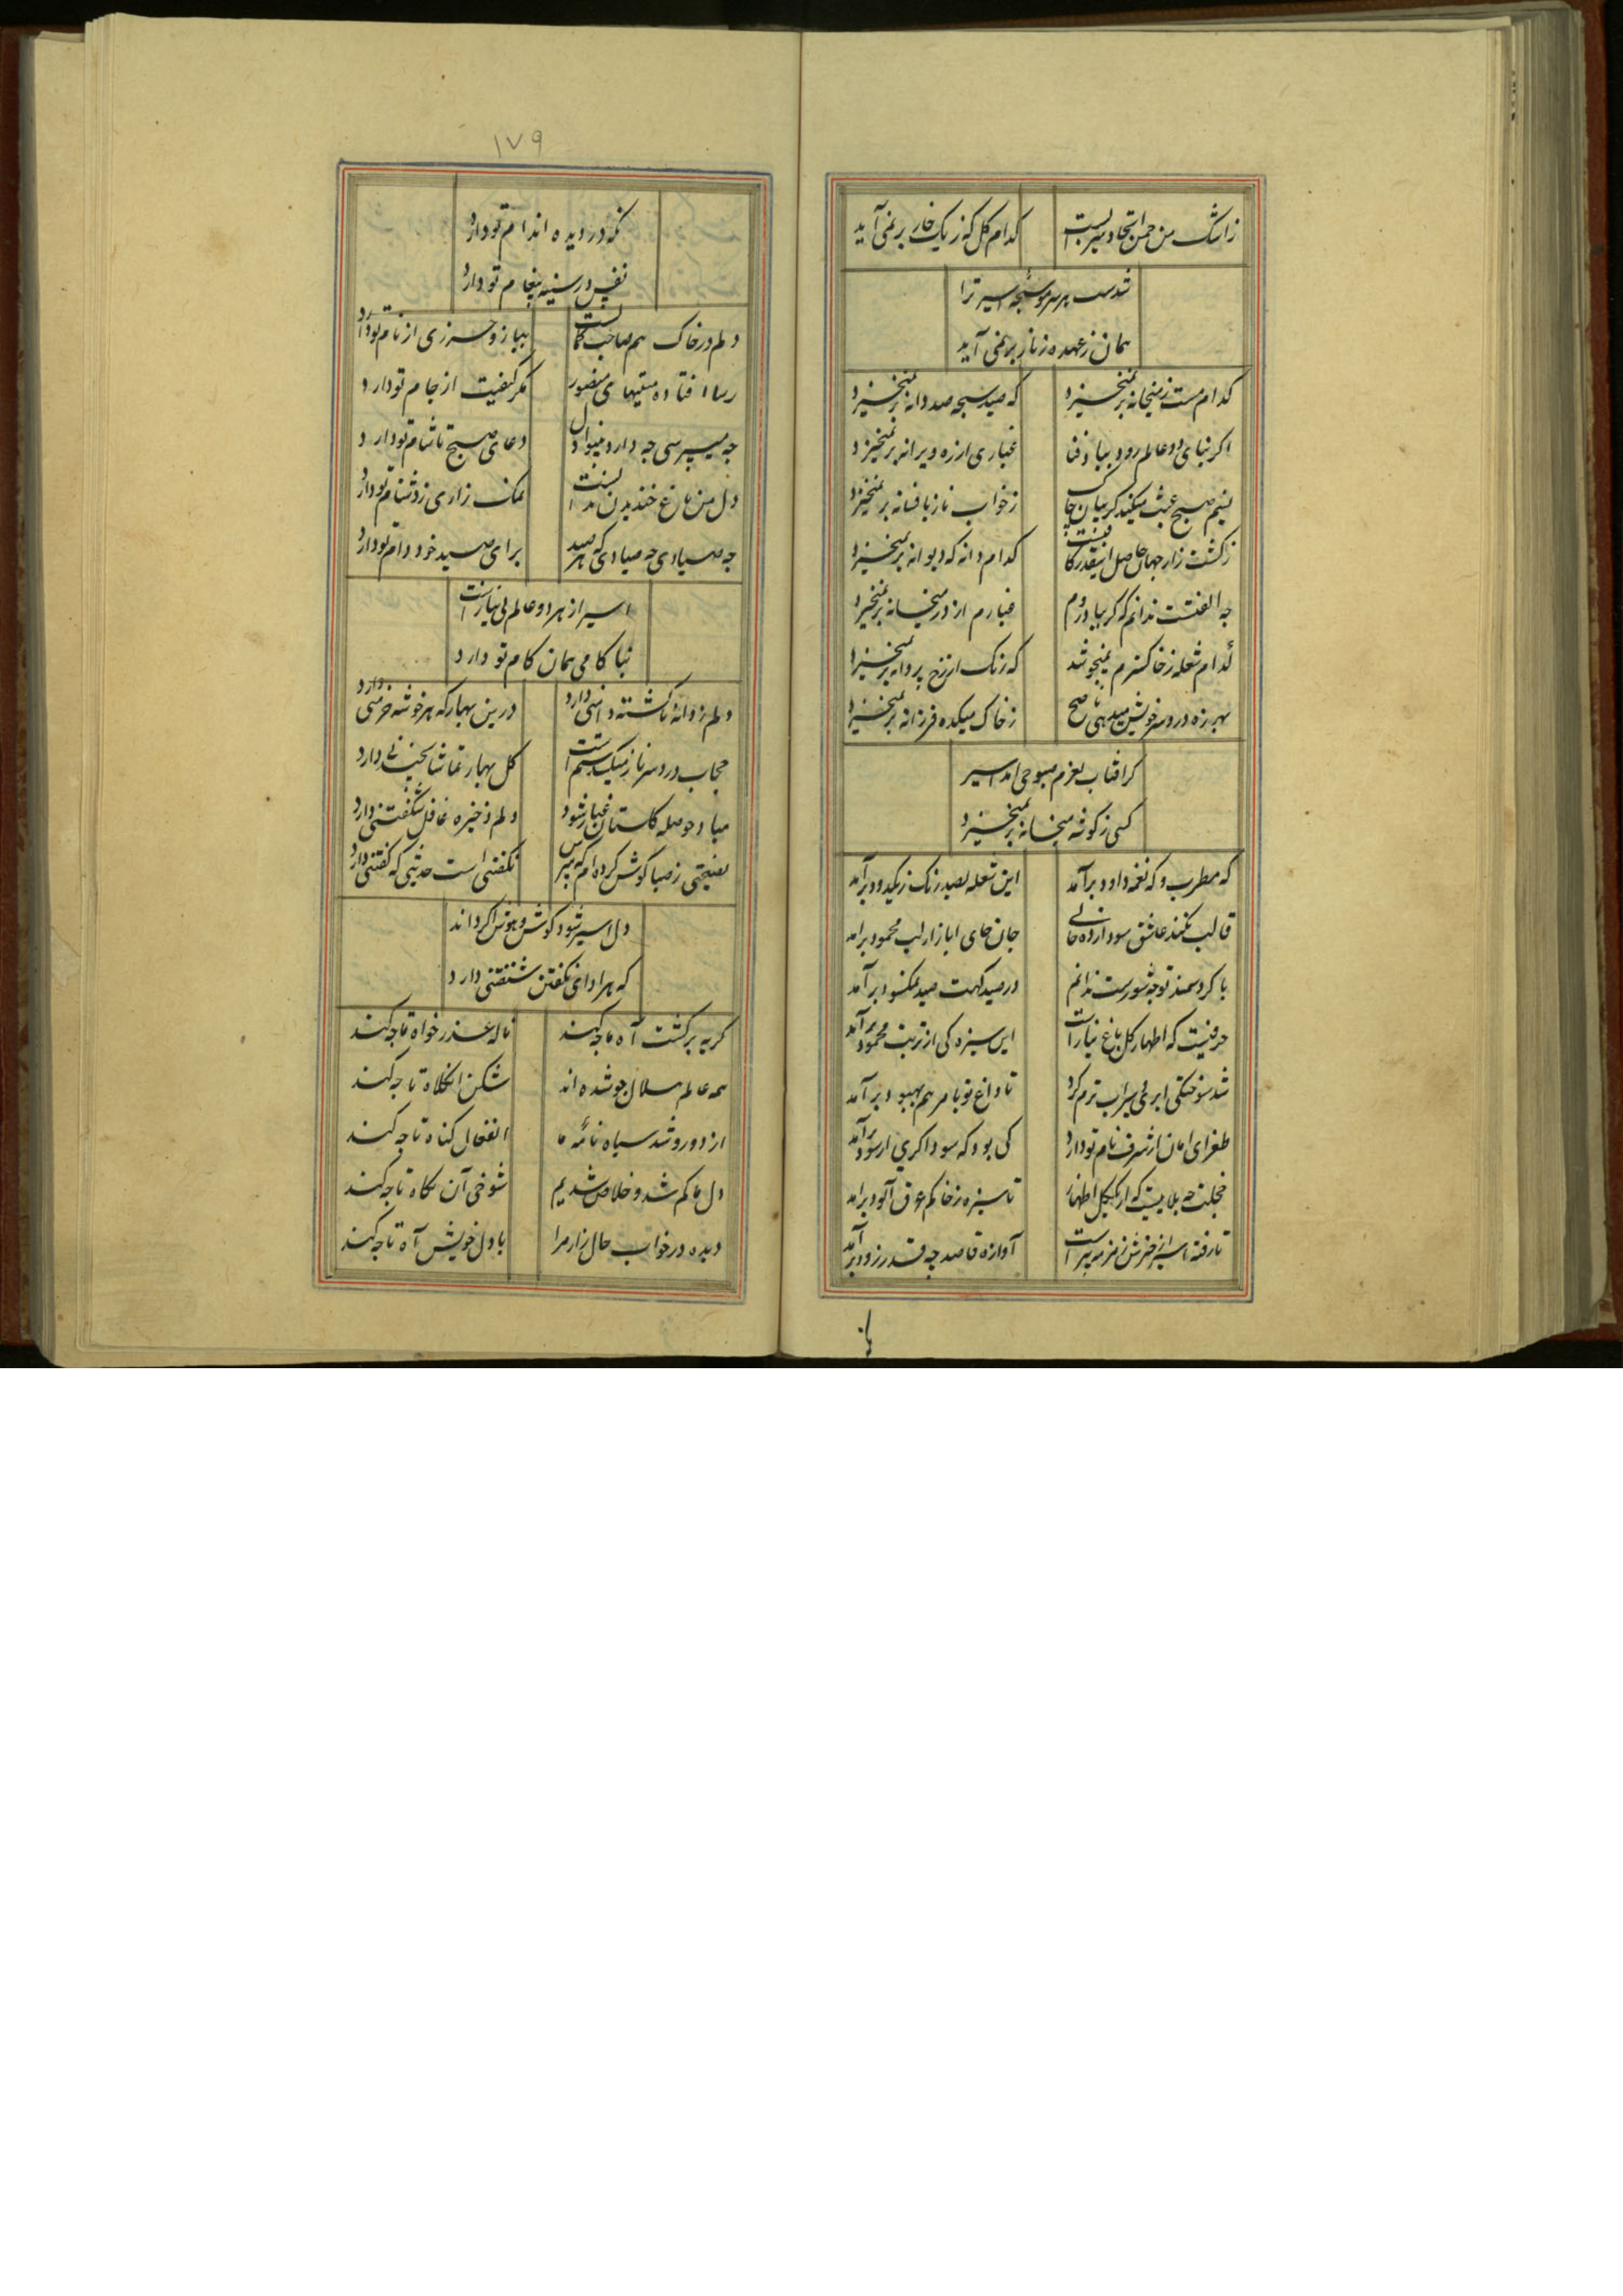 ز اشک من چمن اتحاد سیرابست کدام گل که ز یک خار بر نمی آید
شدست هر سر مو سبحه اسیر ترا
همان ز عهده زنار بر نمی آید
کدام مست ز میخانه بر نمیخیزد که صید سبحه صد دانه بر نمیخیزد
اکر بنای دو عالم رود بباد فنا غباری از ره ویرانه بر نمیخیزد
نسیم صبح عبث میکند کریبان چاک ز خواب ناز بافسانه بر نمیخیزد
ز کشت زار جهان حاصل اینقدر کافیست کدام دانه که دیوانه بر نمیخیزد
چه الفتست ندانم که کر بباد روم غبارم از در میخانه بر نمیخیزد
کدام شعله ز خاکسترم نمیجوشد که رنک از رخ پروانه بر نمیخیزد
بهرزه درد سر خویش میدهی ناصح ز خاک میکده فرزانه بر نمیخیزد
کر افتاب بعزم صبوحی امد اسیر
کسی ز کوشه میخانه بر نمیخیزد
که مطرب و که نغمه داود برآمد این شعله بصد رنک ز یکدود برآمد
قالب نکند عاشق سودا زده خالی جان جای ایاز از لب محمود برامد
با کرد سمند تو چه شورست ندانم در صید کهت صید نمکسود برآمد
حرفیست که اظهار کل باغ نیازست این سبزه کی از تربت محمود برآمد
شد سوختکی ابر می سیراب ترم کرد تا داغ تو با مرهم بهبود برآمد
طغرای امان از شرف نام تو دارد کی بود که سوداکری از سود برآمد
خجلت چه بلاییست که از یک کل اظهار تا سبزه ز خاکم عرق آلود برامد
تا رفته اسیر از خبرش زمزمه پیراست آوازه قاصد چه قدر زود برآمد
باز
۱۷۹
نکه در دیده اندام تو دارد
نفس در سینه پیغام تو دارد
دلم در خاک هم صاحب کمالست ببازو حرزی از نام تو دارد
رسا افتاده مستیهای منصور مکر کیفیت از جام تو دارد
چه میپرسی چه دارد میوه دل دعای صبح تا شام تو دارد
دل من باغ خندیدن ندانست نمک زاری ز دشنام تو دارد
چه صیادی چه صیادی که هر صید برای صید خود دام تو دارد
اسیر از هر دو عالم بی نیازست
بناکامی همان کام تو دارد
دلم ز دانه ناکشته دامنی دارد درین بهار که هر خوشه خرمنی دارد
حجاب درد سر ناز میکشد ستم است کل بهار تماشا نچیدنی دارد
مباد حوصله کلستان غبار شود دلم ذخیره غافل شکفتنی دارد
نصیحتی ز صبا کوش کرده ام که مپرس نکفتنی است حدیثی که کفتنی دارد
دل اسیر شود کوش و هوش اکر داند
که هر ادای نکفتن شنفتنی دارد
کریه برکشت آه تا چه کند ناله عذرخواه تا چه کند
همه عالم سلال جو شده اند شکن انکلاه تا چه کند
از دو رو شد سیاه نامه ما انفعال کناه تا چه کند
دل ما کم شد و خلاص شدیم شوخی آن نکاه تا چه کند
دیده در خواب حال زار مرا با دل خویش آه تا چه کند